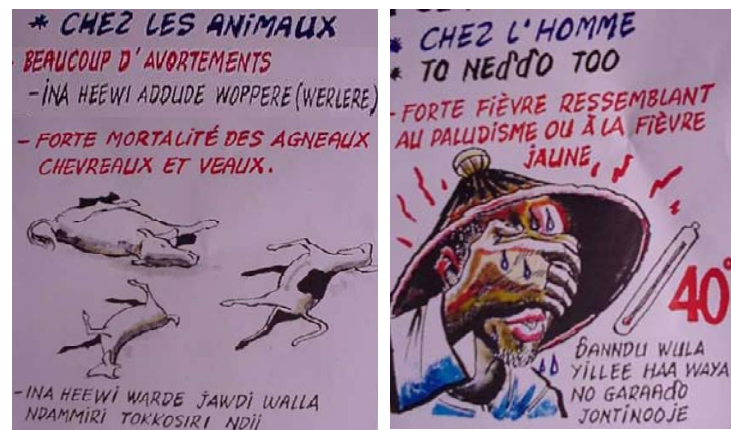 * CHEZ LES ANIMAUX
- BEAUCOUP D'AVORTEMENTS
- INA HEEWI ADDUDE WOPPERE (WERLERE)
- FORTE MORTALITÉ DES AGNEAUX
CHEVREAUX ET VEAUX.
- INA HEEWI WARDE JAWDI WALLA
NDAMMIRI TOKKOSIRI NDII
* CHEZ L'HOMME
* TO NEƊƊO TOO
- FORTE FIÈVRE RESSEMBLANT
AU PALUDISME OU À LA FIÈVRE
JAUNE
40°
ƁANNDU WULA
YILLEE HAA WAYA
NO GARAAƊO
JONTINOOJE